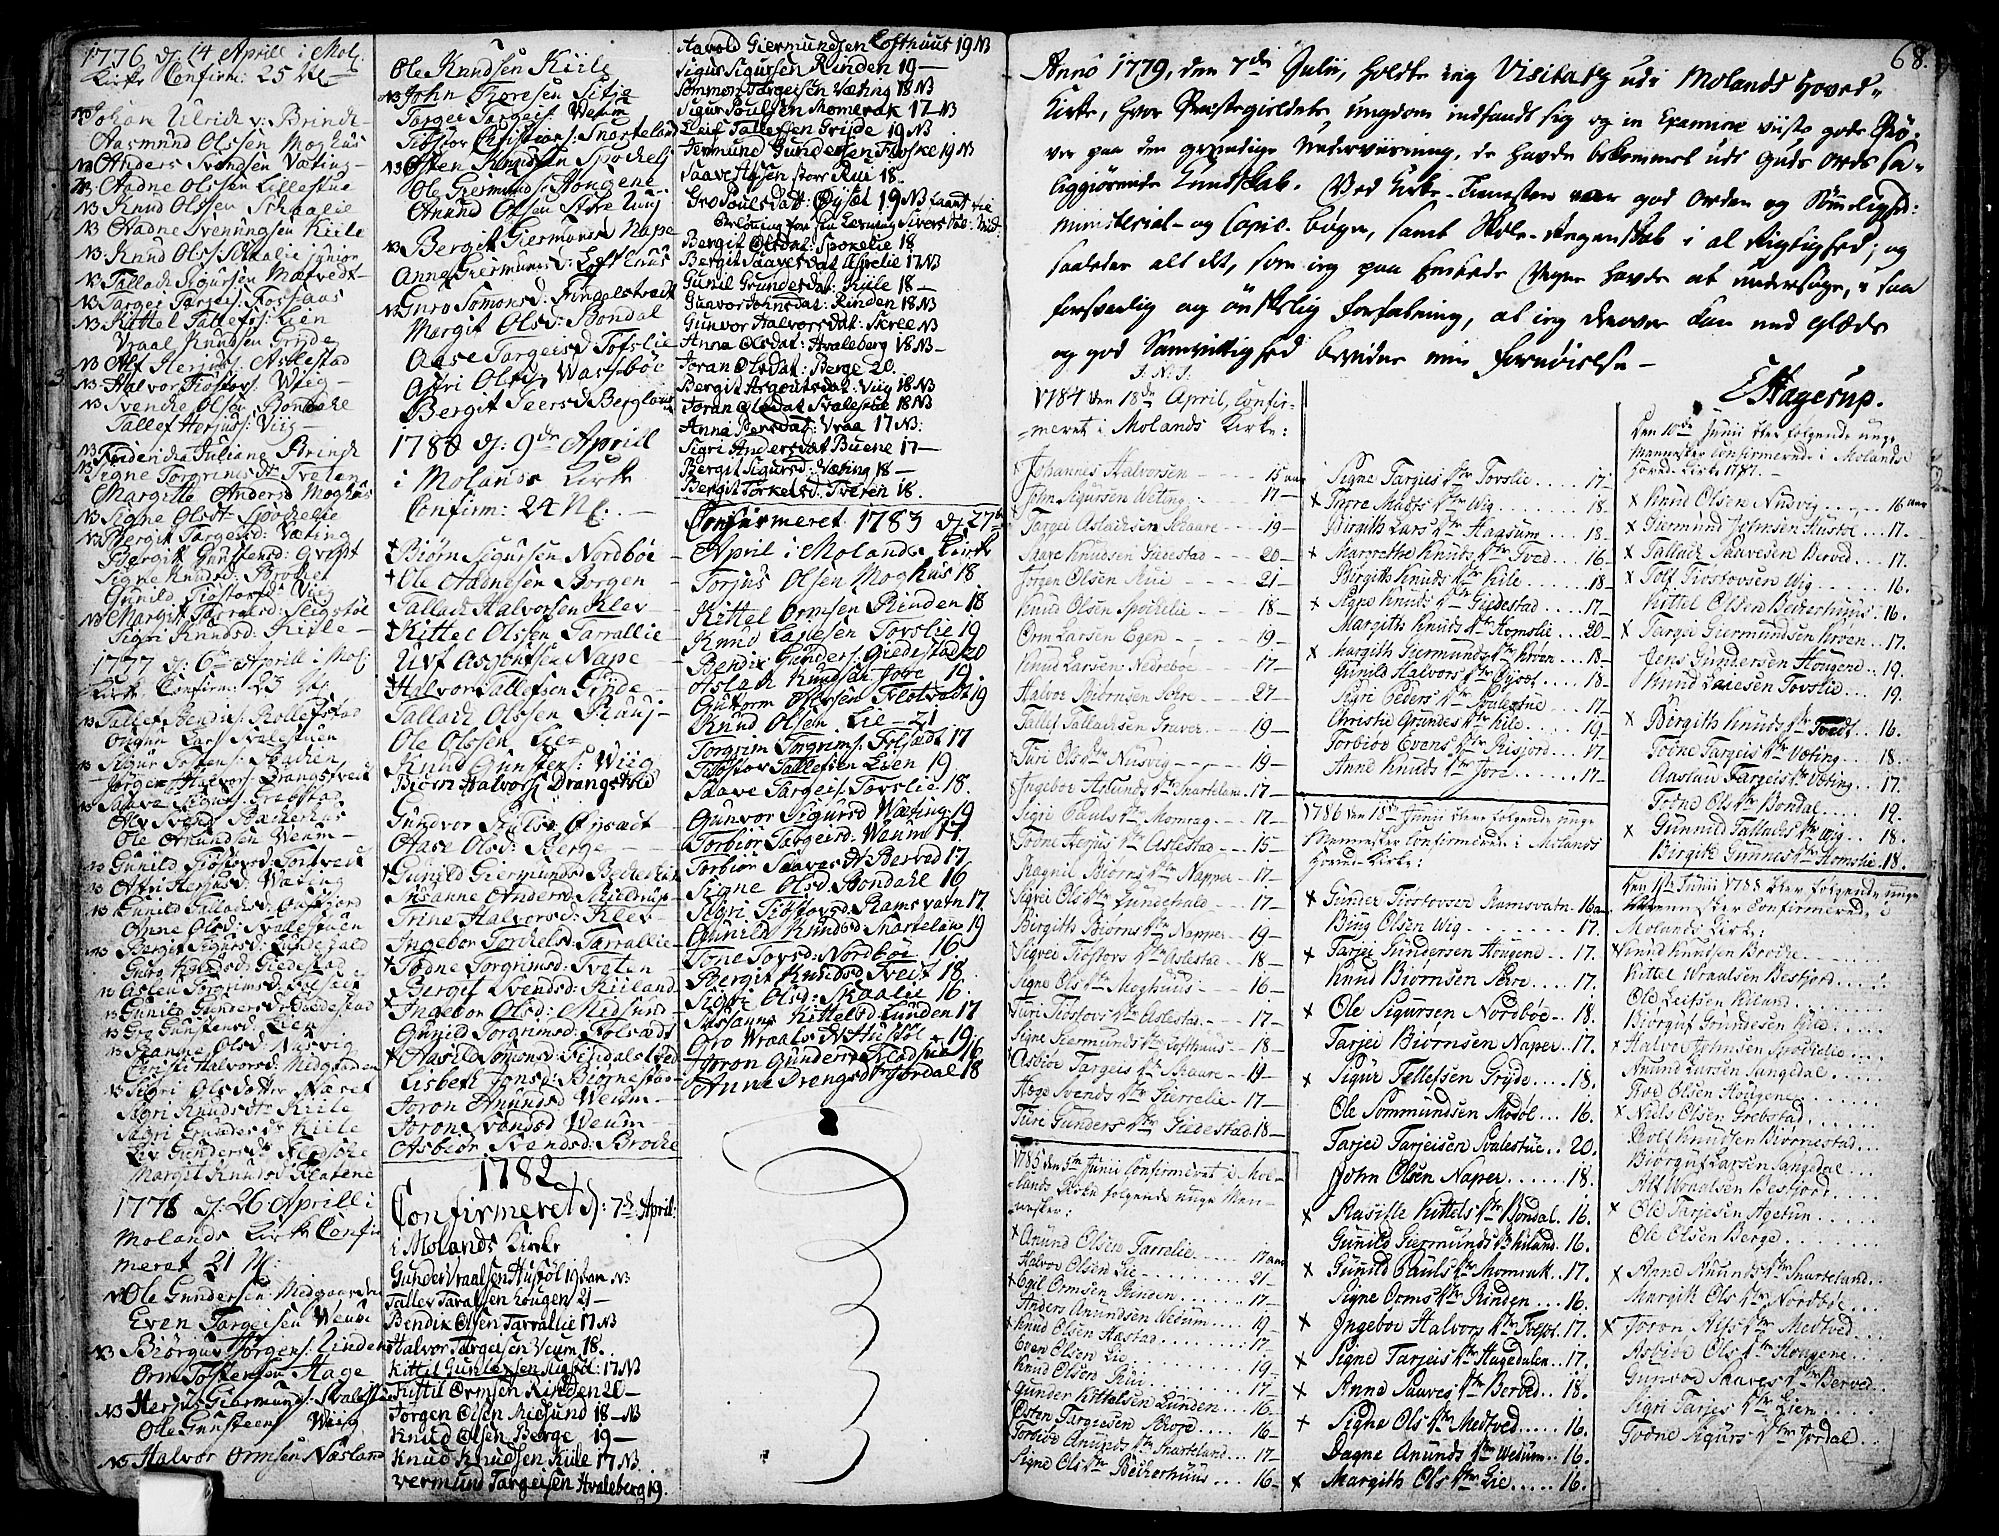 1776 d: 14 Aprill i Mol:
Kirke Confirm: 25 N
Johan Ulrich v: Brinch
Aasmund Olssen Moghus
NB Anders Svendsen Væting
NB Aadne Olssen Lillestue
NB Knud Olssen Skaalie
NB Aadne Svenningsen Kiile
NB Knud Olss: Skaalie junior
NB Tallach Sigursen Mætvedt
NB Targei Targeis: Fossaas
NB Kittel Tallefs: Lien
Vraal Knudsen Gryde
NB Alf Herjus: Aslestad
NB Halvor Tiostovs: Wiig
NB Svenche Olsen Bondahl
Tallef Herjus: Viig
NB Fridericha Juliane Brinch
NB Signe Torgrimsdt Tveten
Margitte Andersd Moghus
NB Signe Olsdt Spochelie
NB Bergit Targeisd: Væting
Bergit Gunstensd: Qvedt
Signe Knudsd: Broche
Gunild Tiostovsd Viig
NB Margit Tarralsd: Sligstøl
Sigri Knudsd: Kiile
1777 d: 6te Aprill i Mol:
Kirke Confirm: 23 N
NB Tallef Bendixs: Rollefstad
Ougun Lars: Svalestuen
NB Sigur Tostens: Haugen
Jørgen Halvors: Drangstvedt
NB Saave Sigurs: Grebstad
Olv Svends: Bæcherhus
Ole Omundsen Veum
NB Gunild Tiostovsd: Tortvedt
NB Asri Herjusd: Væting
NB Gunild Tallachsd: Qvifjord
Anne Olsd: Svalestuen
NB Bergit Sigursd: Lundehald
Guro Knudsd: Giedestad
NB Aslou Torgrimsd: Folsæt
NB Gunild Gundersd: Giedestad
NB Gro Gunstensd: Lien
NB Hanne Olsd: Nasvig
Christi Halvorsd: Midgarden
NB Sigri Olsdatter Næset
Sigri Knudsdt Kiile
Sigri Grundesdt Kiile
Liv Gundersdt Flodsche
Margit Knudsd Flatene
1778 d: 26 Aprill i
Molands Kirke Confir
meret 21 N:
NB Ole Gundersen Midgaarden
Even Targeisen Veum
NB Biørgur Jørgens: Linden
Orm Tostensen Hage
NB Herjus Giermunds: Svalestue
Ole Gunstens: Wiig
NB Halvor Ormsen Næsland
Ole Knudsen Kiile
NB John Thoresen Sitje
Targei Targeis: Veum
Tiostor Christians: Snarteland
NB Østen Knudsen Spochelj
Ole Giermunds: Hougene
Anund Olsen Store Ruuj
NB Bergit Giermunds: Nape
Anne Giermundsd: Lofthuus
NB Guro Somonsd: Findalstvedt
Margit Olsd: Bondal
Aase Targeisd Tofslie
Aasri Olsd: Wassbøe
Bergit Peersd Bergland
1780 d: 9de Aprill
i Molands Kirke
Confirm: 24 N:
Biørn Sigursen Nordbøe
Ole Aadnesen Borgen
Tallach Halvorsen Klev
Kittel Olssen Tarrallie
Ulf Asgoutsen Nape
Halvor Tallefsen Gryde
Tallach Olssen Rauj
Ole Olssen Lie
Knud Gunstens: Viig
Biørn Halvors: Drangstvedt
Gundvor Paulsd: Øysæt
Aase Olsd: Berge
Gunild Giermundsd Becherhus
Susanne Andersd: Skildrup
Trine Halvorsd: Klev
Ingebor Torchelsd: Tarrallie
Todne Torgrimsd: Tveten
Bergit Svendsd: Kiiland
Ingebor Olsd: Midsund
Gunild Torgrimsd: Folsædt
Aasild Somonsd: Findalstved
Lisbeth Jonsd: Biørnestad
Joron Anundsd Veum
Joron Svendsd Veum
Asbiør Svendsd: Broche
1782
Confirmeret d: 7de April:
i Molands Kirke
Gunder Vraalsen Hustøl 19 aar NB
Tallev Taraldsen Hougen 21
Bendix Olsen Tarrallie 17 NB
Halvor Targeisen Veum 18.
Kittil Gunlexsen Sligstøl: 17 NB
Kittil Ormsen Rinden 20
Jørgen Olsen Midsund 18 NB
Knud Olsen Berge 19
Knud Knudsen Kiile 17 NB
Vermund Targeisen Hvaleberg 19.
Aavold Giermundsen Lofthuus 19 NB
Sigur Sigursen Rinden 19
Sommon Targeisen Væting 18 NB
Sigur Poulsen Momrak 17 NB
Eleif Tallefsen Gryde 19 NB
Jermund Gundersen Floske 19 NB
Saave Olsen store Rui 18.
Gro Poulsdatt: Øysæt 19 NB
Bergit Olsdat: Spokelie 18
Bergit Saavesdat Aprelie 17 NB
Gunil Grundesdat: Kiile 18
Gunvor Johnsdat: Rinden 18 NB
Gunvor Halvorsdat: Skree NB
Anna Olsdat: Hvaleberg 18 NB
Joran Olsdat: Berge 20.
Bergit Asgoutsdat: Viig 18 NB
Joran Olsdat Svalestue 18 NB
Anna Persdat: Vraa 17 NB:
Sigri Andersdat Buene 17
Bergit Sigursd: Væting 18
Bergit Torkelsd: Tveten 18.
Confirmeret 1783 d: 27de
April i Molands Kirke
Torjus Olsen Moghus 18
Kittel Ormsen Rinden 18
Knud Lavesen Tovslie 19
Bendix Gunders: Giedestad 20
Aslak Knudsen Jore 19.
Guttorm Olssen Flotvædt 19
Knud Olsen Lie 21
Torgrim Torgrims: Folsædt 17
Tiøstov Tallefsen Lien 19
Saave Targeis: Tovslie 18.
Gunvor Sigursd Væting 19
Torbiør Targeisd: Vaum 17
Torbiør Saavesdt Berved 17
Signe Olsd: Bondahl 16
Sigri Tiøstovsd: Ramsvatn 17
Gunild Knudsd Snartelan 19
Tone Tovsd: Nordbøe 16
Bergit Knudsd: Tvedt 18.
Sigri Olsd: Skaalie 16.
Sussanna Kittelsd: Lunden 17
Gro Wraalsdt Hustøl 19
Joron Gundersdt Flodsche 16
Anne Drengsdtr Jordal 18
68.
Anno 1779, den 7de Julii, holdte jeg Visitatz udi Molands Hoved-
Kirke, hvor Præstegieldets ungdom indfandt sig og in Examine viiste gode Prø-
ver paa den grundige Underviisning, de havde bekommet udi Guds Ords sa-
liggiørende Kundskab. Ved Kirke-Tienesten var god Orden og Sømmelighed:
ministerial- og Copie-bøger, samt Skole-Regenskab i al Rigtighed; og
saaledes alt det, som jeg paa Embeds Vegne havde at undersøge, i saa
forsvarlig og ønskelig Forfatning, at jeg derover kan med Glæde
og god Samvittighed bevidne min Fornøielse
E Hagerup.
J. N. J.
1784 den 18de April, Confir-
meret i Molands Kirke:
Johannes Halvorsen 15 aar
John Sigursen Veting 17
Targei Aslachsen Skaare 19
Saave Knudsen Giedestad 20
Jørgen Olsen Rui 21
Knud Olsen Spokelie 18
Orm Larsen Egen 19
Knud Larsen Nedrebøe 17
Halvor Biørnsen Jore 27
Tallef Tallachsen Graver 19
Turi Olsdtr Nusvig 19
Ingebor Aslundsdtr Snarteland 17
Sigri Paulsdtr Momrag 17
Todne Herjusdtr Aslestad 15
Ragnil Biørnsdtr Napper 17
Sigri Olsdtr Lundehald 17
Birgith Biørnsdtr Napper 19
Sigrei Tiostovsdtr Aslestad 18
Signe Olsdtr Moghuus 16
Turi Tiostovsdtr Aslestad 17
Signe Giermundsdtr Lofthuus 18
Asbiør Targeisdtr Skaare 19
Hæge Svendsdtr Gierrelie 17
Ture Gundersdtr Giedestad 18
1785 den 5te Junii Confirmerat i Mo-
lands Kirke følgende unge Men-
nesker:
Anund Olsen Tarralie 17 aar
Halvor Olsen Lie 21
Egil Ormsen Rinden 17
Anders Anundsen Vedum 19
Knud Olsen Aastad 17
Even Olsen Lie 19
Knud Olsen Rui 17
Gunder Kittelsen Lunden 16
Østen Targeisen Skord 16
Torbiør Anundsdtr Snarteland 17
Signe Olsdtr Becherhuus 16
Signe Tarjeisdtr Tovslie 17
x Thore Madsdtr Wig 18.
Birgith Larsdtr Haasum 18
x Margrethe Knudsdtr Tved 16
Birgith Knudsdtr Kile 18
x Signe Knudsdtr Giedestad 17
Margith Knudsdtr Homslie 20
x Margith Giermundsdtr Kroen 18
Gunild Halvorsdtr Øysøt 18
Sigri Pedersdtr Svalestue 17
Christie Grundesdtr Kile 19
Torbiør Evensdtr Risjord 17
Anne Knudsdtr Jore 17
1786 den 18de Junii bleve følgende unge
Mennesker confirmerede i Molands
Hoved-Kirke:
x Gunder Tiostovsen Ramsvatn 16 aar
Biug Olsen Wig 17.
x Tarjei Gundersen Hougend 17.
Knud Biørnsen Skre 17.
x Ole Sigursen Nordbøe 18.
Tarjei Biørnsen Naper 17.
x Sigur Tellefsen Gryde 18.
Ole Sommundsen Modøl 16.
Tarjei Tarjeisen Svalestue 20.
John Olsen Naper 18.
x Raasille Kittelsdtr Bondal 16.
Gunild Giermundsdtr Kiland 16.
x Gunild Paulsdtr Momrak 17.
Signe Ormsdtr Rinden 16.
x Ingebor Halvorsdtr Tvedt 17.
x Signe Tarjeisdtr Hagedalen 17.
x Anne Saavesdtr Berved 18.
x Signe Olsdtr Medtved 16.
Dagne Anundsdtr Vedum 16.
x Margith Olsdtr Lie 16.
Den 10de Junii blev følgende unge
Mennesker Confirmerede i Molands
Hoved-Kirke 1787.
x Knud Olsen Nusvig 16 aar
x Giermund Johnsen Hustøl 17.
x Tallach Saavesen Berved 17.
x Tolf Tiostovsen Wig 16.
Kittel Olsen Beckerhuus 16.
x Targei Giermundsen Kroen 17.
Jens Gundersen Hougend 19.
Knud Lavesen Tovslie 19.
x Bergith Knudsdtr Tvedt 16.
Todne Targeisdtr Væting 18.
Aaslaug Targeisdtr Væting 17.
Todne Olsdtr Bondal 19.
x Gunnild Talladsdtr Wig 18.
Birgith Gunnesdtr Homslie 18.
Den 1ste Junii 1788 blev følgende unge
Mennesker Confirmerede i
Molands Kirke:
x Knud Knudsen Broche
Kittel Wraalsen Besfjord
Ole Leifsen Kiland
Biørguf Grundesen Kile
x Halvor Johnsen Spockelie
Anund Larsen Sangedal
Roe Olsen Hougene
x Niels Olsen Grebstad
Rolf Knudsen Biørnestad
Biørguf Larsen Sangedal
Alf Wraalsen Besfjord
x Ole Tarjesen Agetun
Ole Olsen Berge
x Anne Anundsdtr Snarteland
Margit Olsdtr Nordbøe
x Joron Alfsdtr Medtved
Asbiør Olsdtr Hougene
Gunvor Saavesdtr Berved
Sigri Tarjesdtr Lien
Todne Sigursdtr Jordal